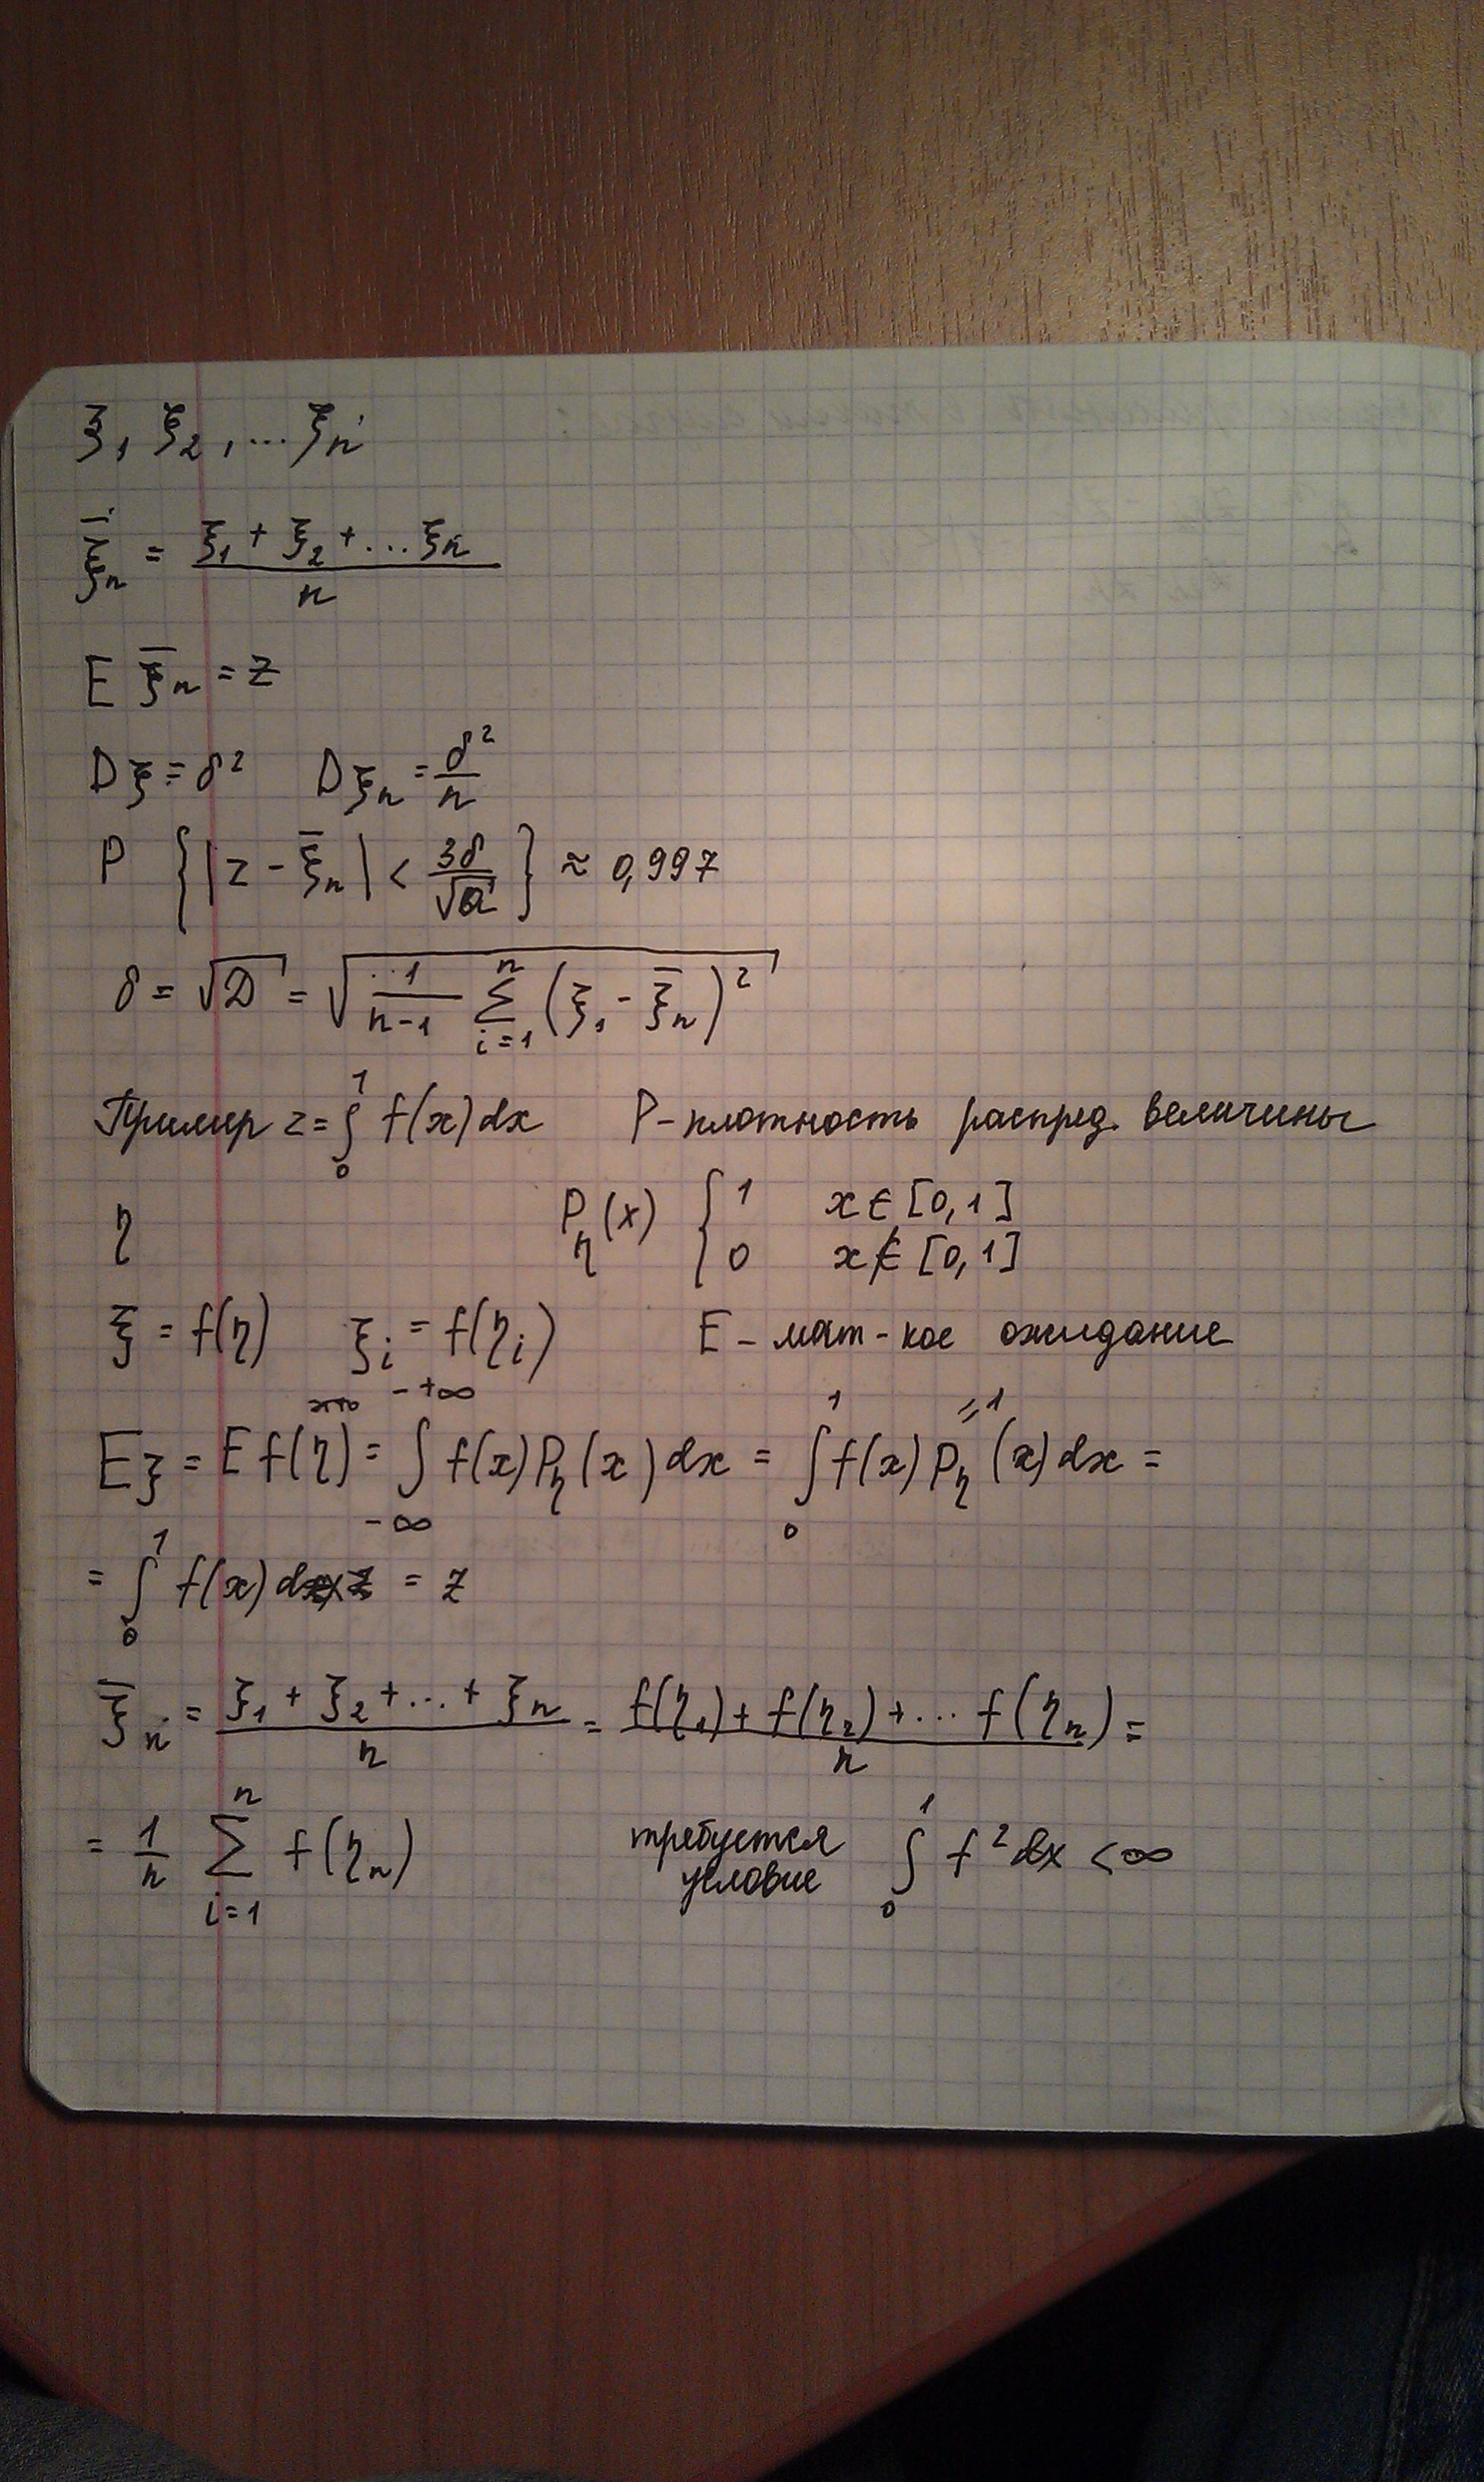 ξ₁, ξ₂, ... ξₙ
ξ̄ₙ = (ξ₁ + ξ₂ + ... ξₙ) / n
E ξ̄ₙ = z
Dξ = δ² Dξₙ = δ²/n
P {|z - ξ̄ₙ| < 3δ/√n} ≈ 0,997
δ = √D = √(1/(n-1) ∑ᵢ₌₁ⁿ (ξ₁ - ξ̄ₙ)²)
Пример z = ∫₀¹ f(x)dx P - плотность распред. величины
η P_η(x) { 1 x ∈ [0,1]
0 x ∉ [0,1]
ξ = f(η) ξᵢ = f(ηᵢ) E - мат-кое ожидание
Eξ = E f(η) = ∫₋∞⁺∞ f(x)P_η(x)dx = ∫₀¹ f(x) P_η(x)dx = =1
= ∫₀¹ f(x)dx = z
ξ̄ₙ = (ξ₁ + ξ₂ + ... + ξₙ) / n = (f(η₁) + f(η₂) + ... f(ηₙ)) / n =
= 1/n ∑ᵢ₌₁ⁿ f(ηₙ) требуется условие ∫₀¹ f² dx < ∞